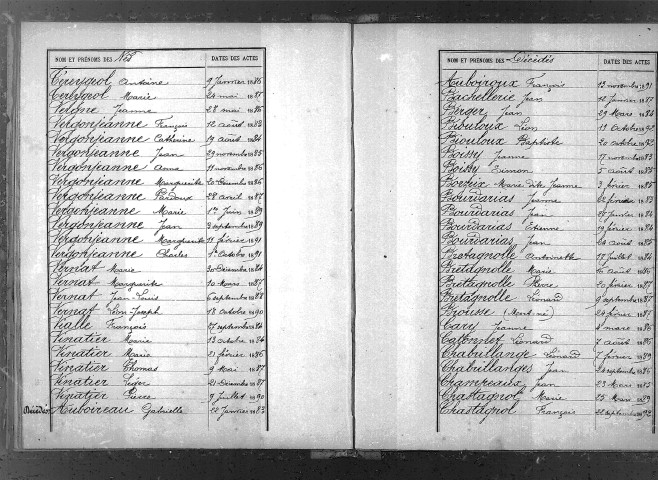 NOM ET PRÉNOMS DES Nés DATES DES ACTES
Antoine 9 Janvier 1886
Marie 24 mai 1887
Vergne Jeanne 28 mai 1886
Vergonjeanne François 12 août 1883
Vergonjeanne Catherine 19 août 1884
Vergonjeanne Jean 29 novembre 1885
Vergonjeanne Anna 11 novembre 1886
Vergonjeanne Marguerite 20 Décembre 1886
Vergonjeanne Pardoux 28 avril 1887
Vergonjeanne Marie 1er Juin 1889
Vergonjeanne Jean 3 septembre 1889
Vergonjeanne Marguerite 11 février 1891
Vergonjeanne Charles 1er Octobre 1891
Vernat Marie 30 Décembre 1884
Vernat Marguerite 10 Mars 1887
Vernat Jean Louis 6 septembre 1888
Vernat Léon Joseph 18 octobre 1890
Vialle François 27 septembre 1884
Vinatier Marie 13 octobre 1884
Vinatier Marie 21 février 1886
Vinatier Thomas 9 Mai 1887
Vinatier Léger 21 Décembre 1887
Vinatier Pierre 9 Juillet 1890
Décédés Auboireau Gabrielle 22 Janvier 1883
NOM ET PRÉNOMS DES Décédés DATES DES ACTES
Auboiroux François 13 novembre 1891
Bachellerie Jean 12 janvier 1887
Berger Jean 29 Mars 1884
Biouloux Léon 11 Octobre 1892
Biouloux Baptiste 20 octobre 1892
Boissy Jeanne 17 novembre 1883
Boissy Simon 5 août 1885
Marie dite Jeanne 3 février 1885
Bourdarias Jeanne 1883
Bourdarias Jean 27 janvier 1884
Bourdarias Etienne 19 février 1884
Bourdarias Jean 20 août 1885
Bretagnolle Antoinette 18 Juillet 1884
Bretagnolle Marie 16 août 1886
Bretagnolle Pierre 20 février 1887
Bretagnolle Léonard 9 septembre 1887
Brousse (Mort-né) 24 février 1887
Cary Jeanne 4 mars 1886
Calonnet Léonard 7 août 1886
Chabullange Léonard 7 février 1889
Chabullanges Jean 24 septembre 1886
Champeaux Jean 23 Mars 1885
Chastagnol Marie 25 Mars 1889
Chastagnol François 22 septembre 1892